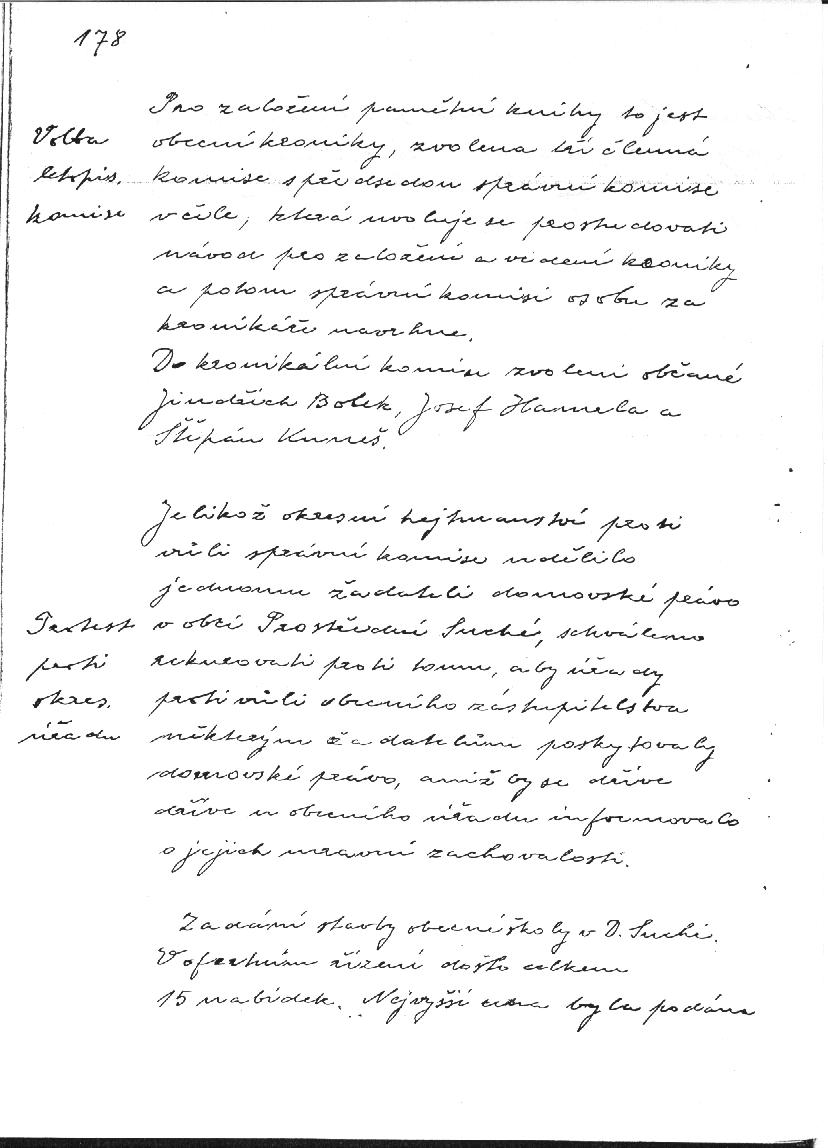 178
Pro založení pamětní knihy to jest
Volba
obecní kroniky, zvolena tříčlenná
letopis.
komise s předsedou správní komise
komise
v čele, která uvoluje se prostudovati
návod pro založení a vedení kroniky
a potom správní komisi osobu za
kronikáře navrhne.
Do kronikální komise zvoleni občané
Jindřich Bolek, Josef Hamela a
Štěpán Kuneš.
Jelikož okresní hejtmanství proti
vůli správní komise udělilo
jednomu žadateli domovské právo
Protest
v obci Prostřední Suché, schváleno
proti
rekurovati proti tomu, aby úřady
okres.
proti vůli obecního zástupitelstva
úřadu
některým žadatelům poskytovaly
domovské právo, aniž by se dříve
dříve u obecního úřadu informovalo
o jejich mravní zachovalosti.
Zadání stavby obecní školy v D. Suché.
V ofertním řízení došlo celkem
15 nabídek. Nejvyšší cena byla podána